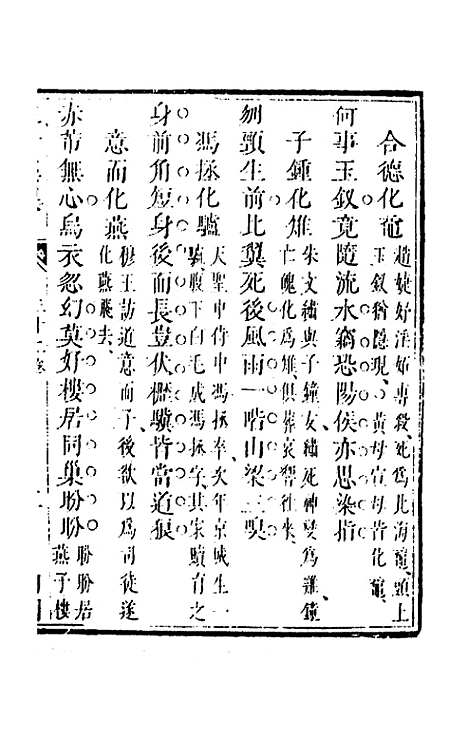 合德化黿趙婕妤淫妬專殺死爲北海黿頭上
玉釵猶隱現黃母宣母皆化黿
何事玉釵竟隨流水窮恐陽侯亦思染指
子鍾化雉朱文繡與子鐘友繡死神叟爲雞鐘
亡魄化爲雉俱葬哀響往來
刎頸生前比翼死後風雨一啼山梁三嗅
馮拯化驢天聖中侍中馮拯卒次年京城生一
驢腹下白毛成馮拯字其家贖育之
身前角短身後而長豈伏櫪驥昔當道狼
意而化燕穆王訪道意而子後欲以爲司徒遂
化燕飛去
赤芾無心烏衣忽幻莫好樓居同巢盼盼盼盼居
燕子樓